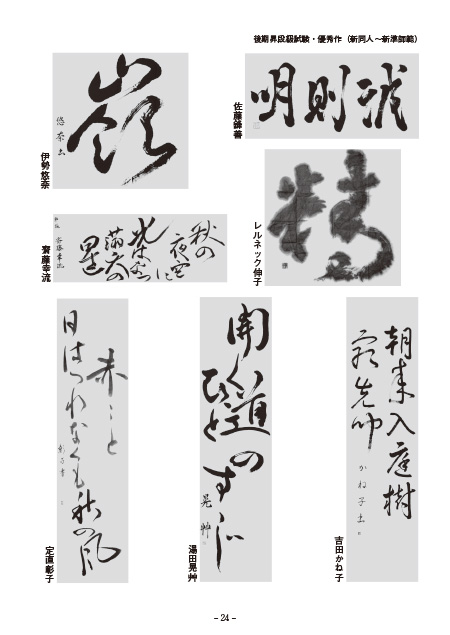 後期昇段級試験・優秀作（新同人～新準師範）
誠則明
佐藤
嶺
悠奈書
伊勢悠奈
精
レルネック伸子
秋の
夜空に
満天の
星
齋藤幸流
朝来入庭樹
かね子書
吉田かね子
開く道の
ひと
晃艸
湯田晃艸
赤〻と
日はつれなくも秋の風
彰子書
定直彰子
- 24 -